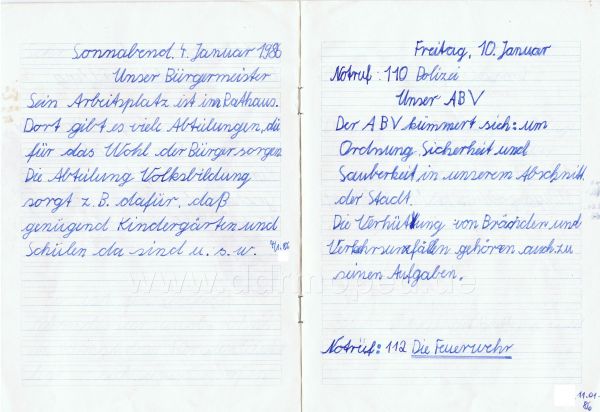 Sonnabend, 4. Januar 1986
Unser Bürgermeister
Sein Arbeitsplatz ist im Rathaus.
Dort gibt es viele Abteilungen, die
für das Wohl der Bürger sorgen.
Die Abteilung Volksbildung
sorgt z. B. dafür, daß
genügend Kindergärten und
Schulen da sind u. s. w.
Freitag, 10. Januar
Notruf: 110 Polizei
Unser ABV
Der ABV kümmert sich: um
Ordnung, Sicherheit und
Sauberkeit in unserem Abschnitt
der Stadt.
Die Verhütung von Bränden und
Verkehrsunfällen gehören auch zu
seinen Aufgaben.
Notruf: 112 Die Feuerwehr
11.01.
86
www.ddrmoped.de